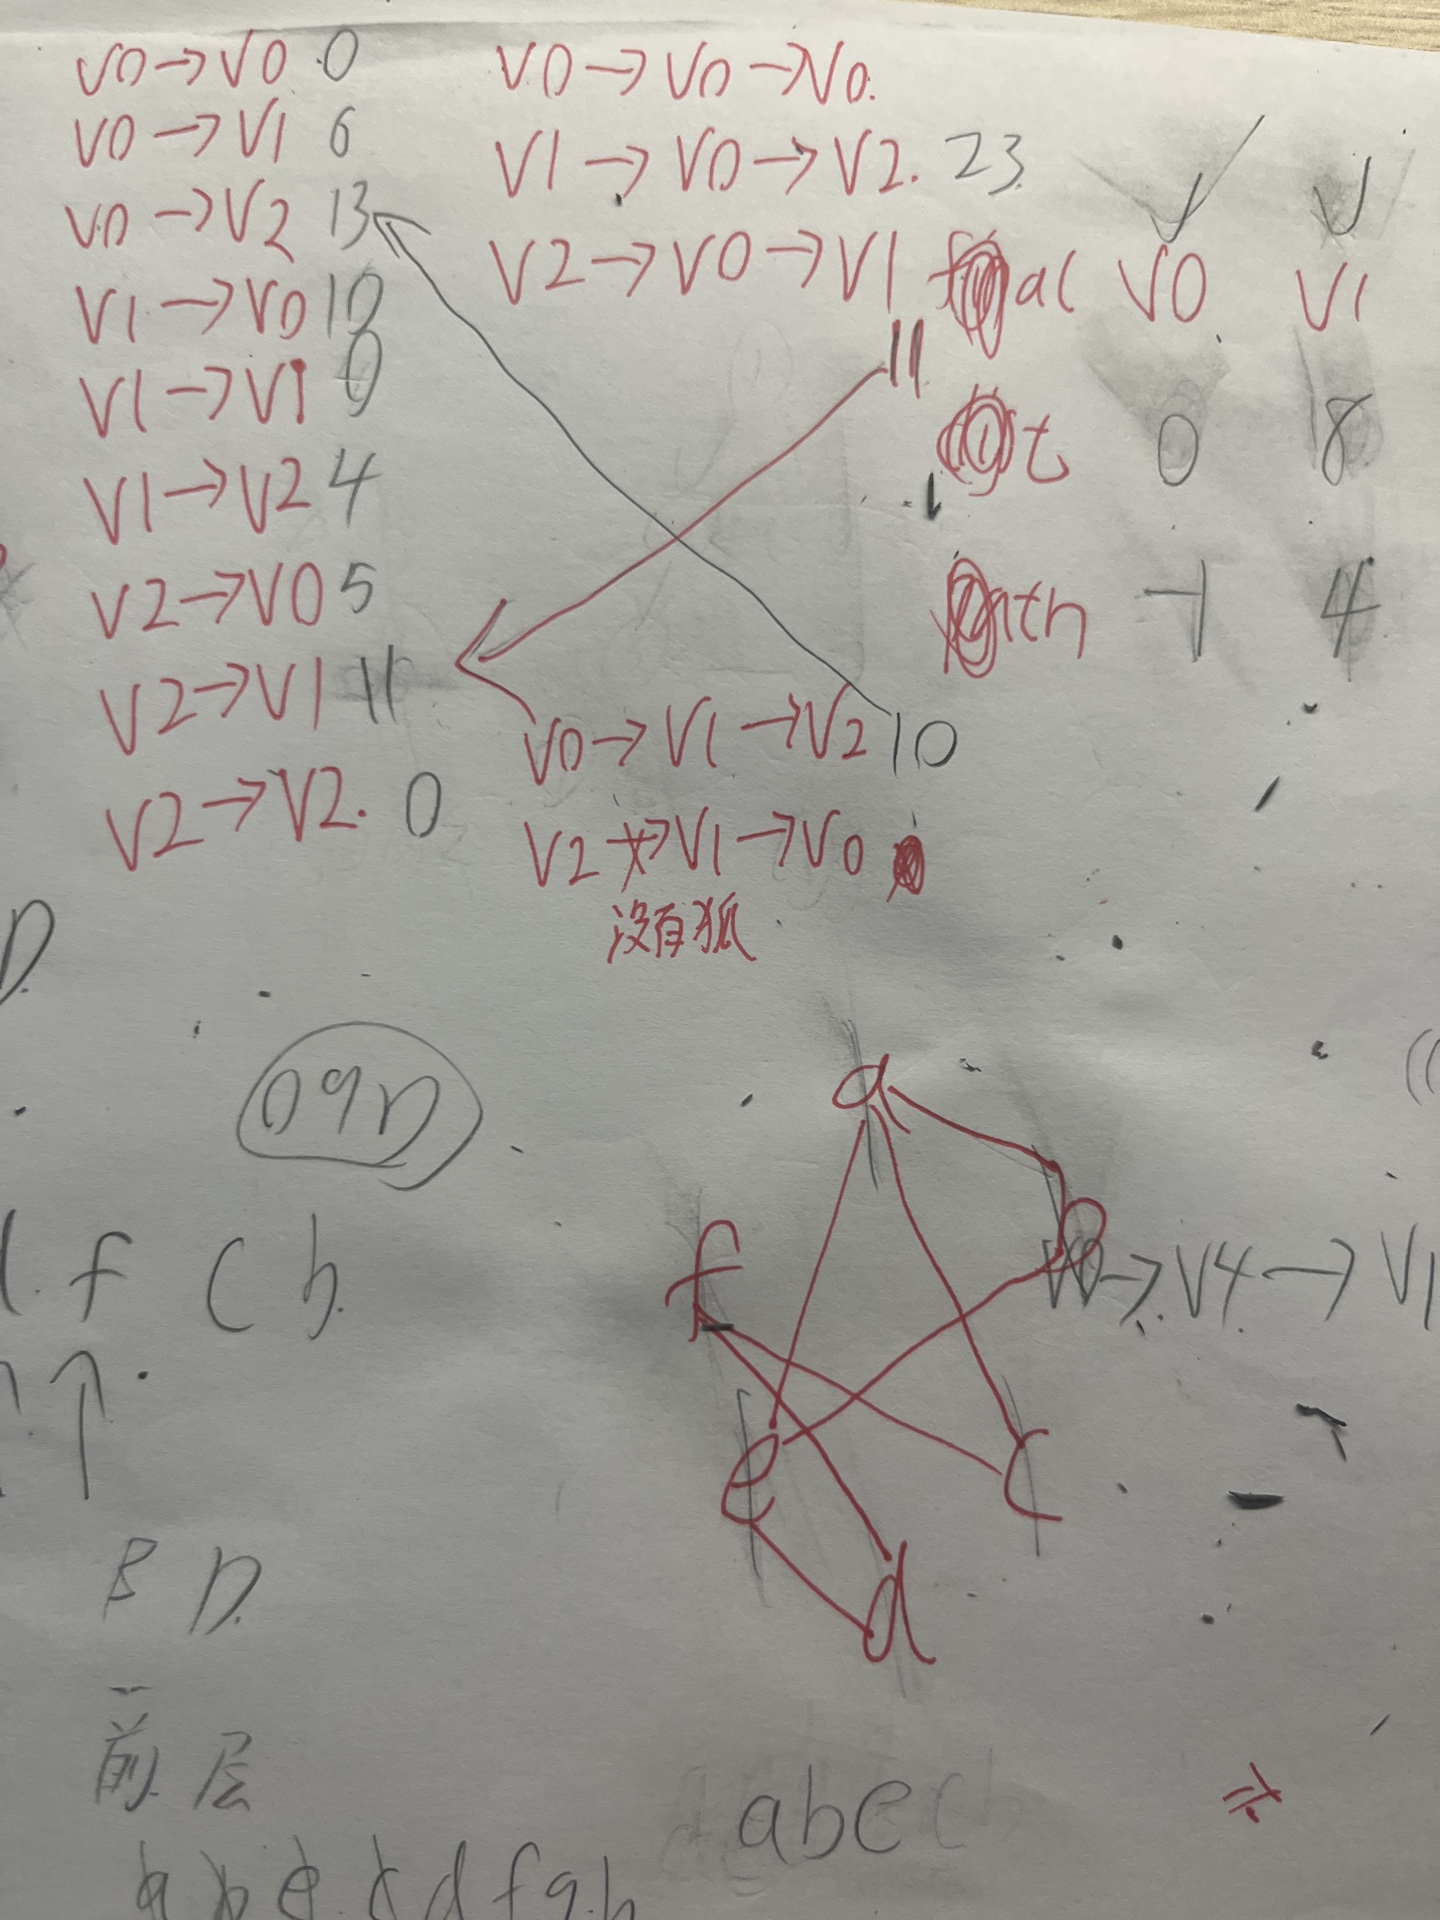 V0→V0 0
V0→V1 6
V0→V2 13
V1→V0 10
V1→V1 0
V1→V2 4
V2→V0 5
V2→V1 11
V2→V2. 0
V0→V0→V0.
V1→V0→V2. 23.
V2→V0→V1
11
V0→V1→V2 10
V2→V1→V0
没有狐
V0 V1
0 8
-1 4
D.
f C h.
B D.
前 层
a b e c d f g h
a
b
f
e
c
d
V0→V4→V1
abe